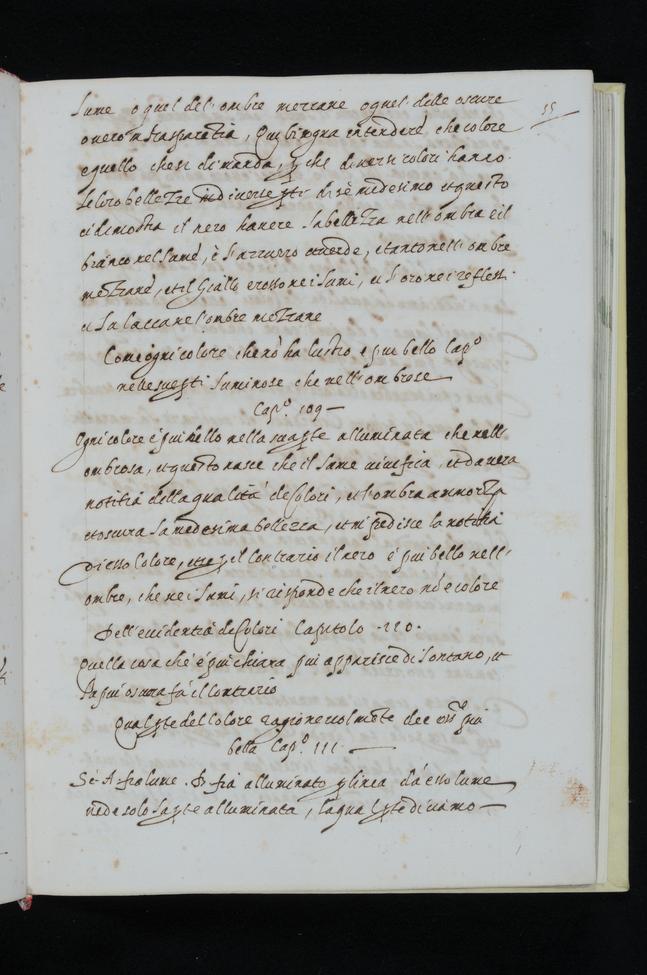 lume o quel del' ombre mezzane o quel delle oscure
overo in trasparetia, qui bisogna intendere che colore
e quello che si dimanda, p che diversi colori hanno
le loro bellezze in diverse pti di sè medesimo et questo
ci dimostra il nero havere la bellezza nell' ombra è il
bianco nel lume, è l'azzurro et verde, et tanè nell' ombre
mezzane, et il Giallo e rosso nei lumi, et l'oro nei reflessi
et la lacca nel' ombre mezzane
Come ogni colore che nõ ha lustro e piu bello Cap.º
nele sue pti luminose che nell' ombrose
Cap.º 109
Ogni colore é piu bello nella sua pte alluminata che nell'
ombrosa, et questo nasce che il lume vivifica, et da vera
notitia della qualita de Colori, et l'ombra ammorza
et oscura la medesima bellezza, et inpedisce la notitia
di esso Colore, et se p il contrario il nero é piu bello nell'
ombre, che nei lumi, si risponde che il nero nõ e colore
Dell' evidentia de Colori Capitolo .110.
Quella cosa ché é piu chiara piu apparisce di lontano, et
la piu oscura fá il contrario
Qual pte del Colore ragionevolmete dee essere piu
bella Cap.º 111
Se A fia lume . B fiá alluminato p linea dá esso lume
vede solo la pte alluminata, la qual pte diciamo
15